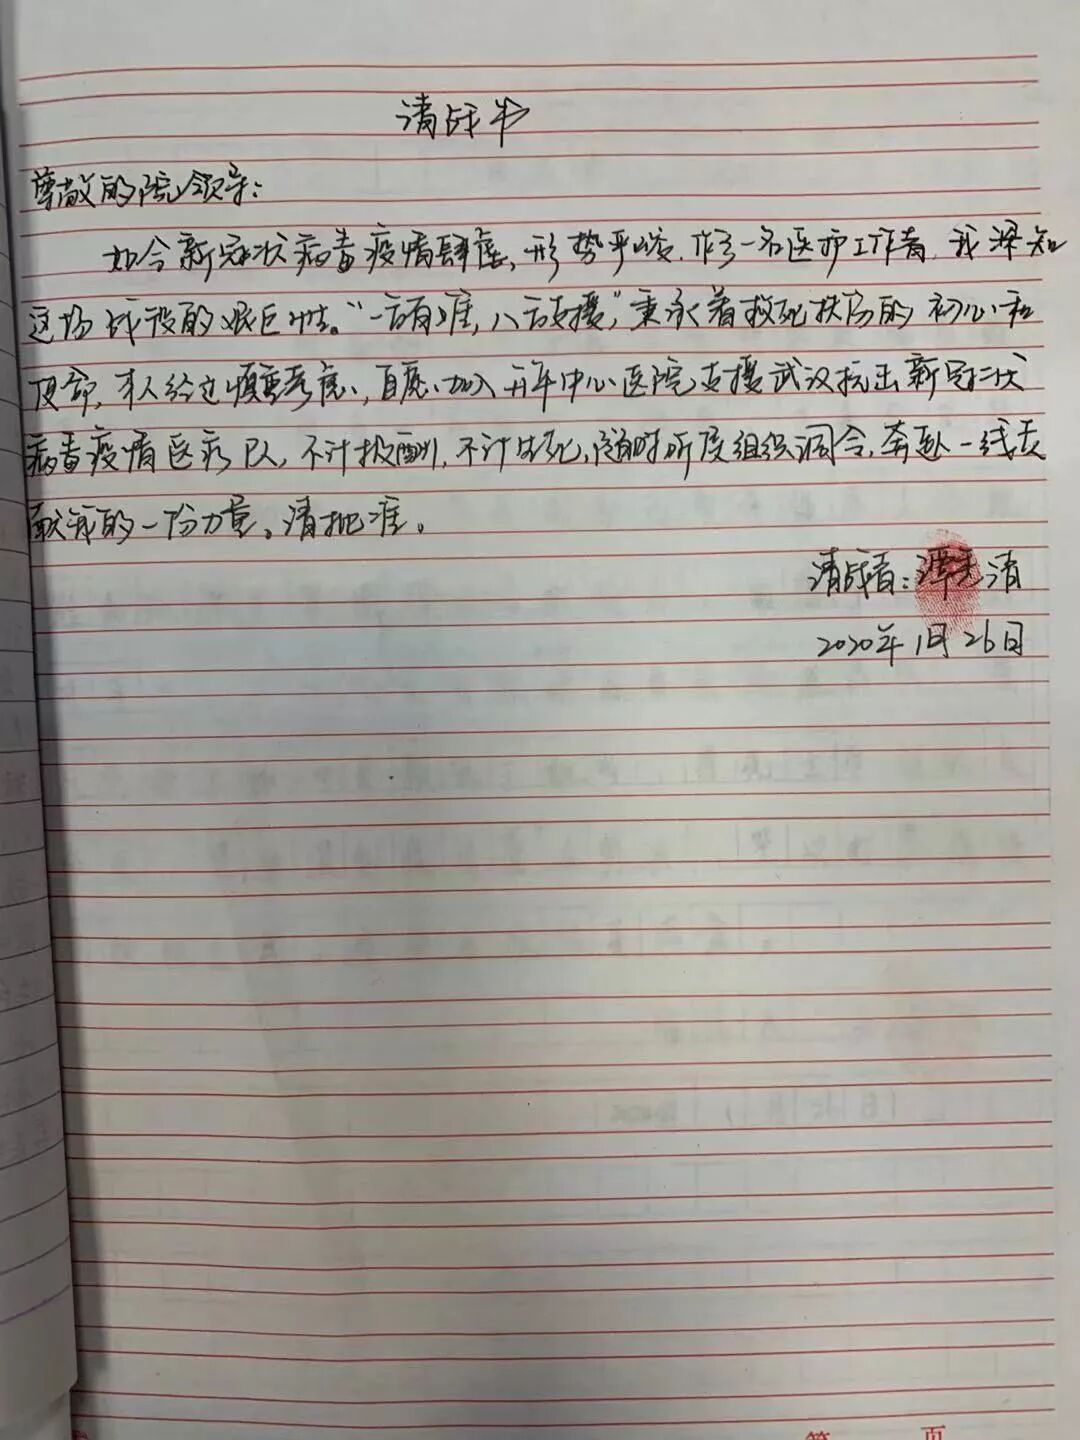 请战书
尊敬的院领导:
如今新冠状病毒疫情肆虐,形势严峻.作为一名医护工作者.我深知
这场战役的艰巨性。“一方有难,八方支援”,秉承着救死扶伤的初心和
使命,本人经过慎重考虑,自愿加入开年中心医院支援武汉抗击新冠状
病毒疫情医疗队,不计报酬,不计生死,随时听候组织调令,奔赴一线贡
献我的一份力量。请批准。
请战者:清
2020年1月26日
第 页